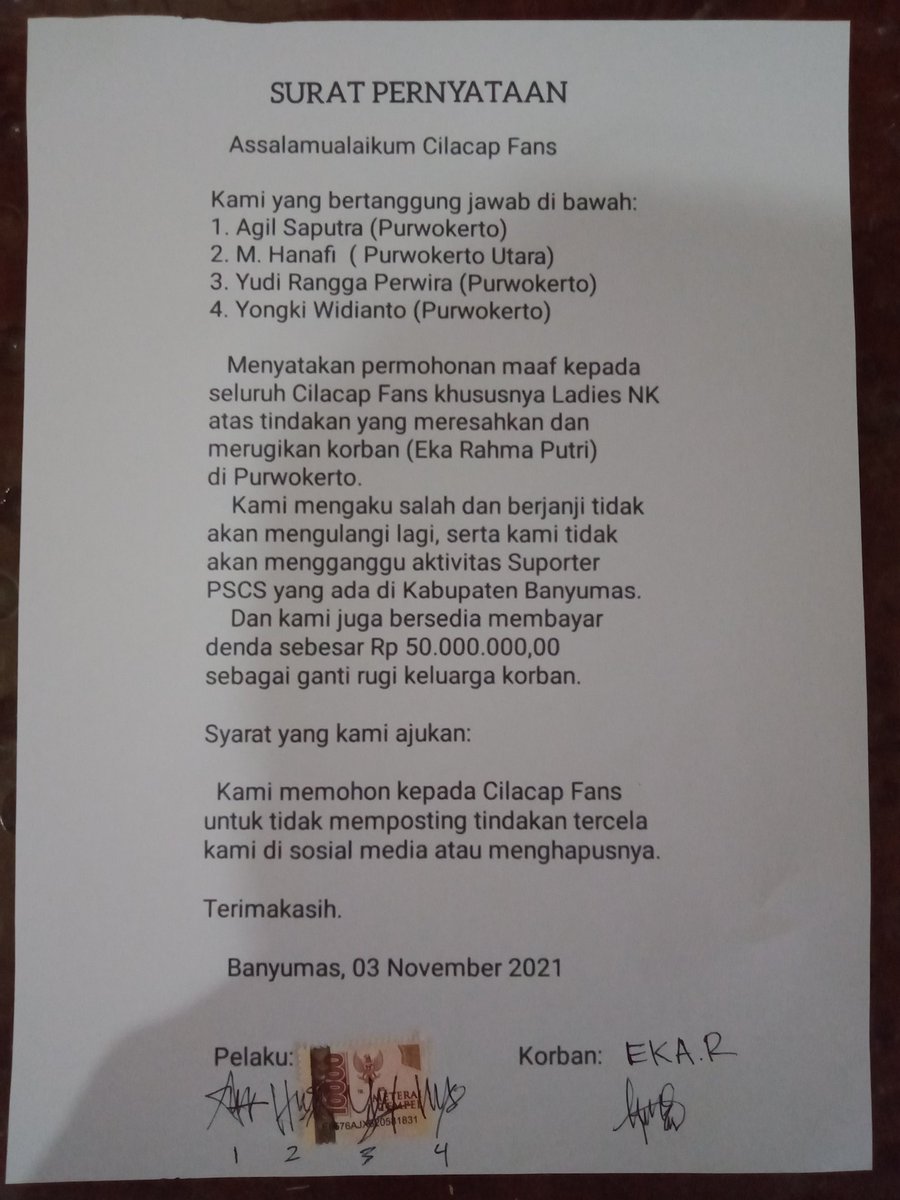 SURAT PERNYATAAN
Assalamualaikum Cilacap Fans
Kami yang bertanggung jawab di bawah:
1. Agil Saputra (Purwokerto)
2. M. Hanafi ( Purwokerto Utara)
3. Yudi Rangga Perwira (Purwokerto)
4. Yongki Widianto (Purwokerto)
Menyatakan permohonan maaf kepada
seluruh Cilacap Fans khususnya Ladies NK
atas tindakan yang meresahkan dan
merugikan korban (Eka Rahma Putri)
di Purwokerto.
Kami mengaku salah dan berjanji tidak
akan mengulangi lagi, serta kami tidak
akan mengganggu aktivitas Suporter
PSCS yang ada di Kabupaten Banyumas.
Dan kami juga bersedia membayar
denda sebesar Rp 50.000.000,00
sebagai ganti rugi keluarga korban.
Syarat yang kami ajukan:
Kami memohon kepada Cilacap Fans
untuk tidak memposting tindakan tercela
kami di sosial media atau menghapusnya.
Terimakasih.
Banyumas, 03 November 2021
Pelaku: Korban: EKA.R
10000
1 2 3 4